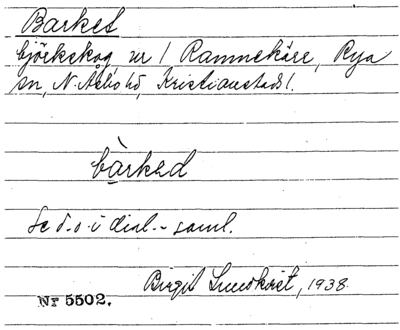 Barket
björkskog, nr 1 Rammekärr, Rya
sn, N. Åsbo hd, Kristianstads l.
bàrked
Se d. o. i dial.-saml.
Birgit Lundkvist, 1938
Nr 5502.